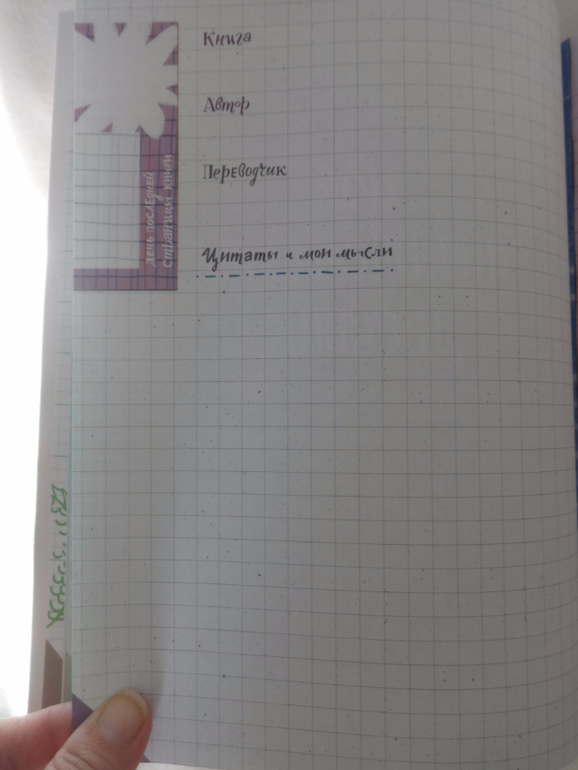 Книга
Автор
Переводчик
день последней
страницы книги
Цитаты и мои мысли